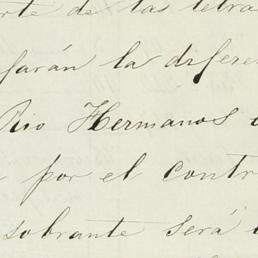 rte de las letra
farán la diferen
Rio Hermanos
por el contr
sobrante será